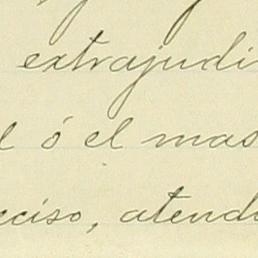 extrajudi
l ó el mas
eciso, atend